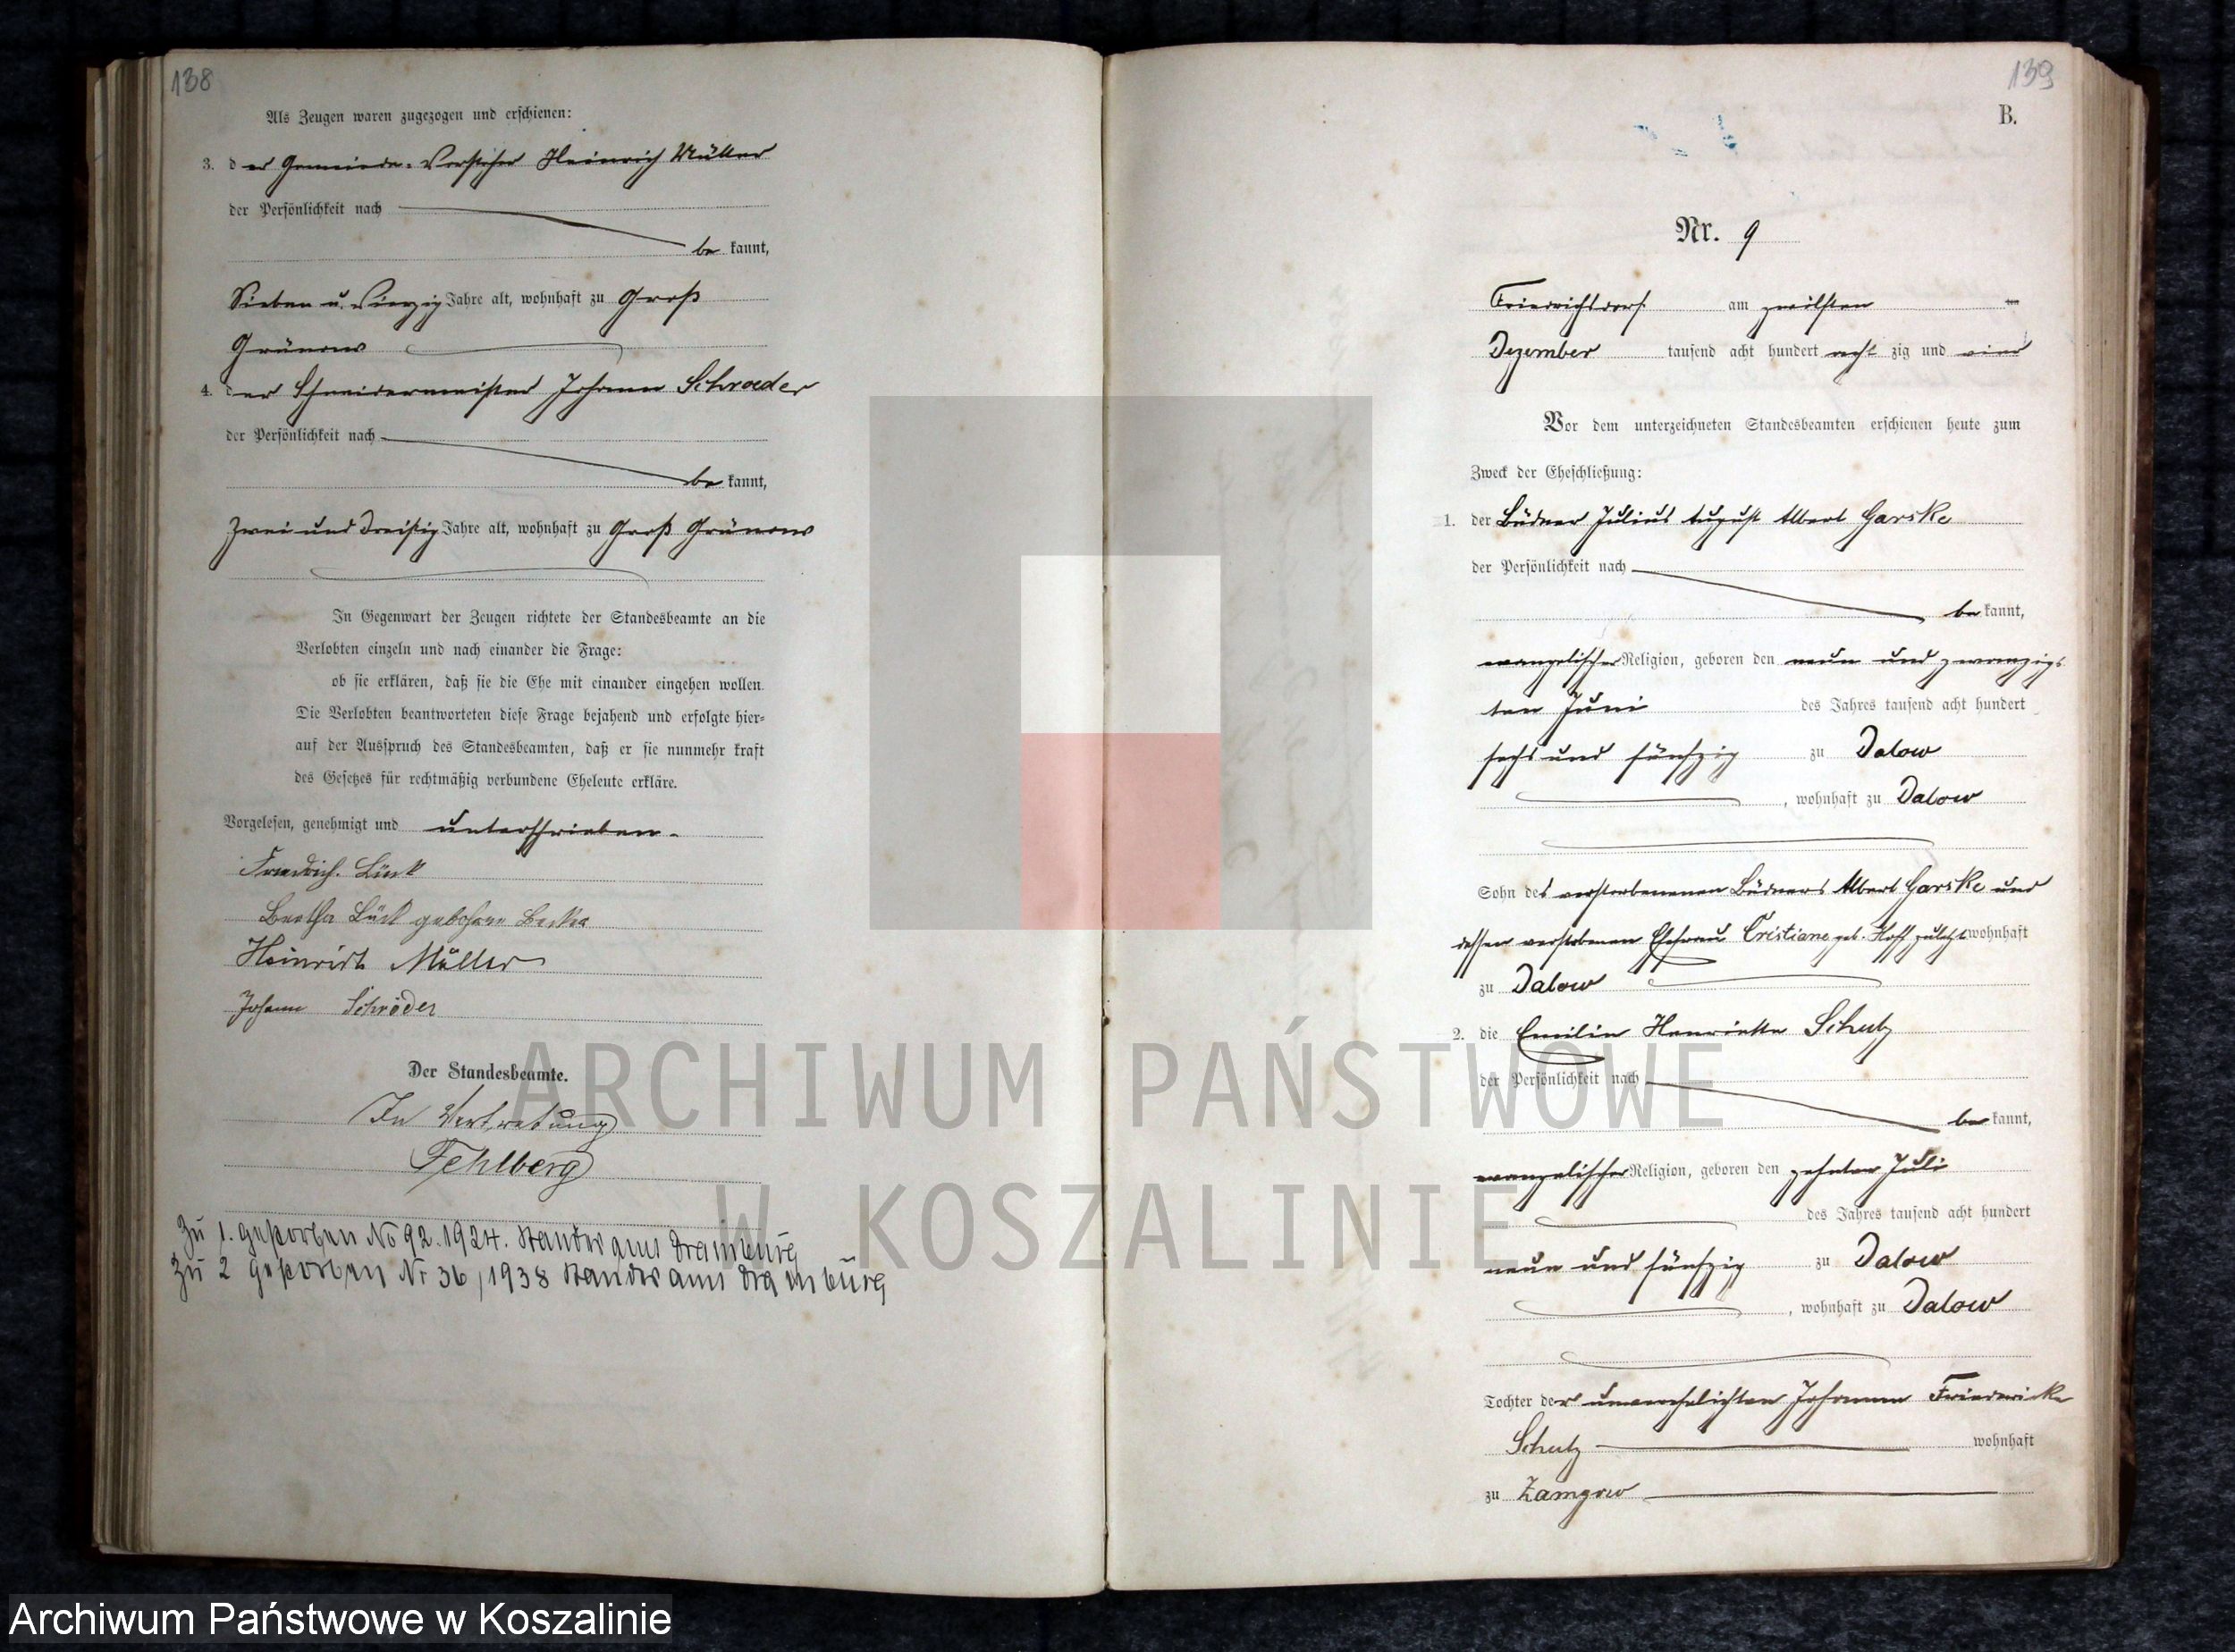 138
Als Zeugen waren zugezogen und erschienen:
3. der Gemeinde-Vorsteher Heinrich Müller
der Persönlichkeit nach
be kannt,
Sieben u. Vierzig Jahre alt, wohnhaft zu Groß
Grünow
4. der Schneidermeister Johann Schroeder
der Persönlichkeit nach
be kannt,
Zwei und Dreißig Jahre alt, wohnhaft zu Groß Grünow
In Gegenwart der Zeugen richtete der Standesbeamte an die
Verlobten einzeln und nach einander die Frage:
ob sie erklären, daß sie die Ehe mit einander eingehen wollen.
Die Verlobten beantworteten diese Frage bejahend und erfolgte hier-
auf der Ausspruch des Standesbeamten, daß er sie nunmehr kraft
des Gesetzes für rechtmäßig verbundene Eheleute erkläre.
Vorgelesen, genehmigt und unterschrieben.
Friedrich Lück
Bertha Lück geborene
Heinrich Müller
Johann Schröder
Der Standesbeamte.
In Vertretung
Fehlberg
Zu 1. gestorben No 92.1924. Standesamt Dramburg
Zu 2 gestorben Nr 36/1938 Standesamt Dramburg
139
B.
Nr. 9
Friedrichsdorf am zwölften ten
Dezember tausend acht hundert acht zig und vier
Vor dem unterzeichneten Standesbeamten erschienen heute zum
Zweck der Eheschließung:
1. der Büdner Julius August Albert Garske
der Persönlichkeit nach
be kannt,
evangelischer Religion, geboren den neun und zwanzigs
ten Juni des Jahres tausend acht hundert
sechs und fünfzig zu Dalow
, wohnhaft zu Dalow
Sohn des verstorbenenen Büdners Albert Garske und
dessen verstorbenen Ehefrau Cristiane geb. Hoff zuletzt wohnhaft
zu Dalow
2. die Emilie Henriette Schulz
der Persönlichkeit nach
be kannt,
evangelischer Religion, geboren den zehnten Juli
des Jahres tausend acht hundert
neun und fünfzig zu Dalow
, wohnhaft zu Dalow
Tochter der unverehelichten Johanne Friedericke
Schulz wohnhaft
zu Zamzow
ARCHIWUM PAŃSTWOWE
W KOSZALINIE
Archiwum Państwowe w Koszalinie